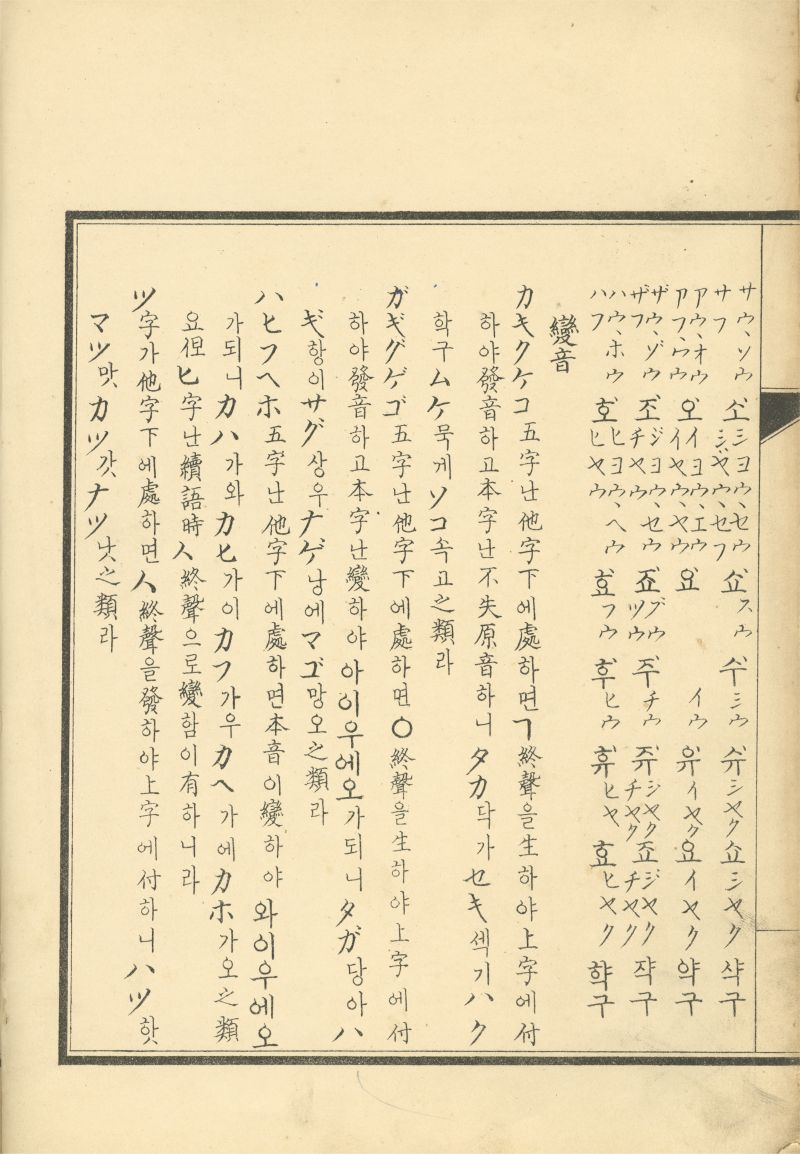 サウ、ソウ サフ 소 シヨウ、セウ シヤウ、セフ 쇼 スウ 수 シウ 슈 シヤク 쇼 シヤク 샥구
アウ、オウ アフ、ウウ 오 イヨウ、エウ イヤウ、ヤウ 요 イウ 유 イヤク 요 イヤク 약구
ザウ、ゾウ ザフ 조 ジヨウ、セウ チヤウ 죠 ツウ 주 チウ 쥬 ジヤク チヤク 죠 ジヤク チヤク 쟉구
ハウ、ホウ ハフ 호 ヒヨウ、ヘウ ヒヤウ 효 フウ 후 ヒウ 휴 ヒヤ 효 ヒヤク 햑구
變音
カキクケコ五字난他字下에處하면ㄱ終聲을生하야上字에付
하야發音하고本字난不失原音하니タカ닥가セキ섹기ハク
학구ムケ묵게ソコ속고之類라
ガギグゲゴ五字난他字下에處하면ㅇ終聲을生하야上字에付
하야發音하고本字난變하야아이우에오가되니タガ당아ハ
ギ항이サグ상우ナゲ낭에マゴ망오之類라
ハヒフヘホ五字난他字下에處하면本音이變하야와이우에오
가되니カハ가와カヒ가이カフ가우カヘ가에カホ가오之類
요但ヒ字난續語時ㅅ終聲으로變함이有하니라
ツ字가他字下에處하면ㅅ終聲을發하야上字에付하니ハツ핫
マツ맛カツ갓ナツ낫之類라